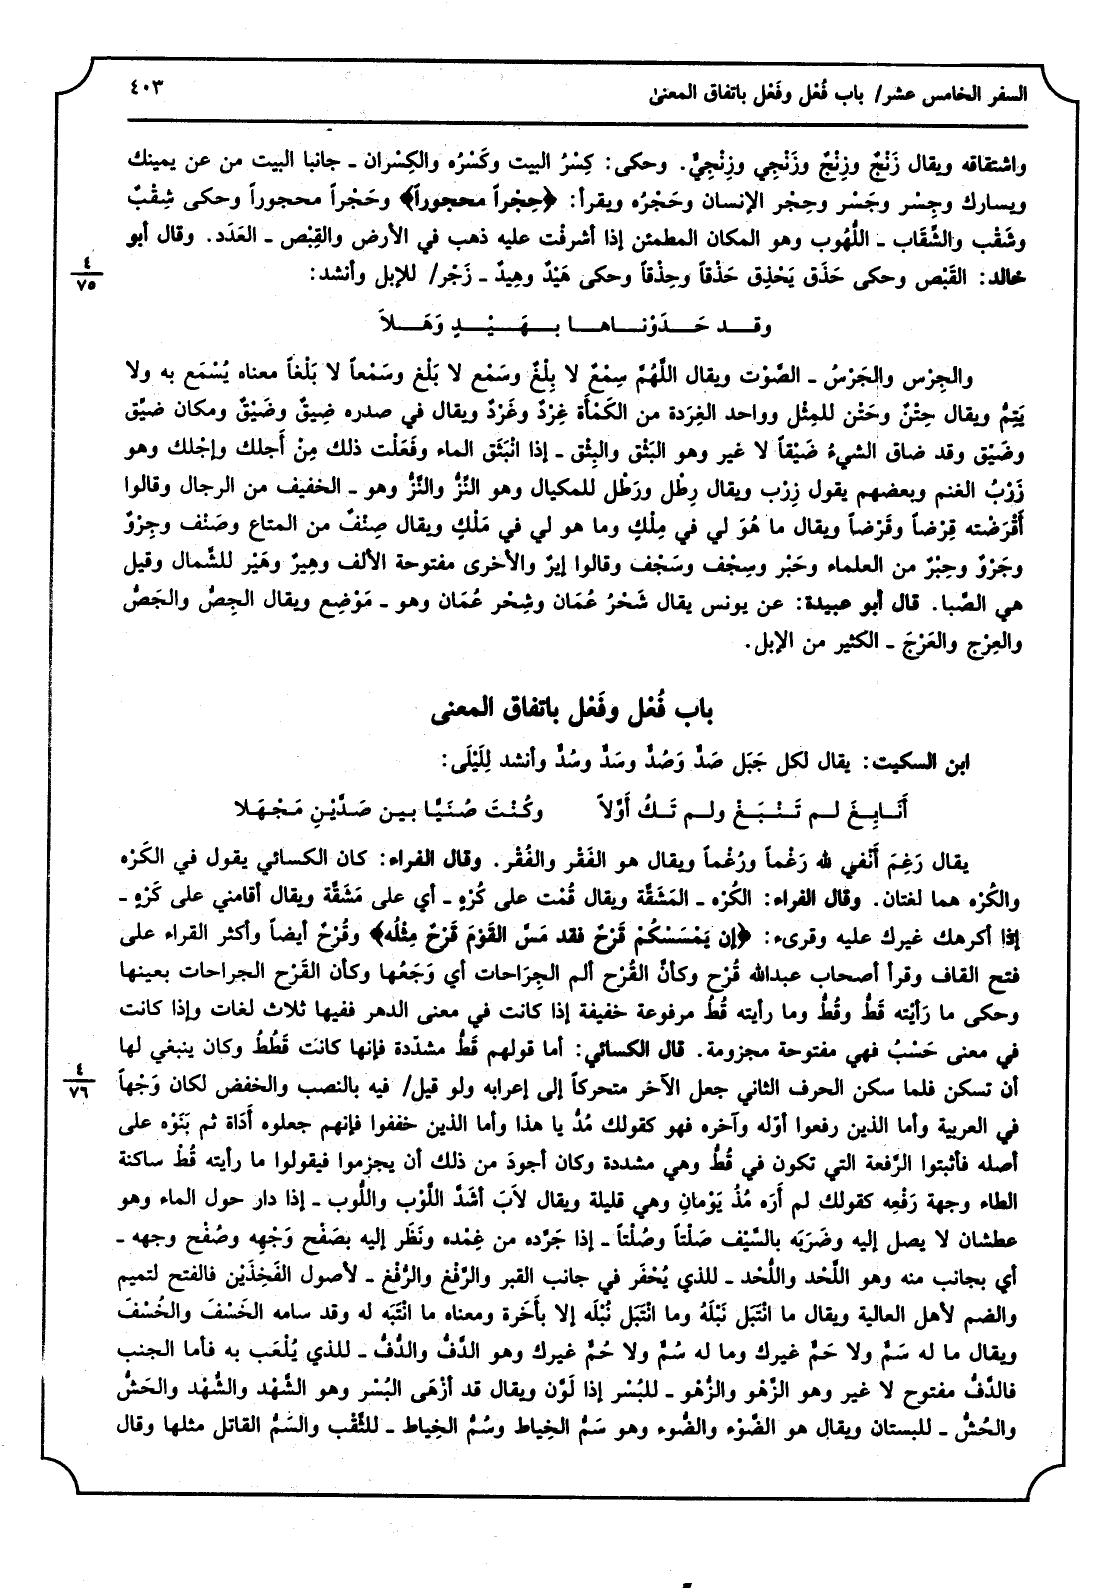 السفر الخامس عشر/ باب فُعْل وفَعْل باتفاق المعنى
٤٠٣
واشتقاقه ويقال زَنْجٌ وزِنْجٌ وزَنْجِي وزِنْجِيٌّ. وحكى: كِسْرُ البيت وكَسْرُه والكِسْران ـ جانبا البيت من عن يمينك
ويسارك وجِسْر وجَسْر وحِجْر الإنسان وحَجْرُه ويقرأ: ﴿حِجْراً محجوراً﴾ وحَجْراً محجوراً وحكى شِقْبٌ
وشَقْب والشِّقَاب ـ اللُّهُوب وهو المكان المطمئن إذا أشرفْت عليه ذهب في الأرض والقِبْص ـ العَدَد. وقال أبو
خالد: القَبْص وحكى حَذَق يَحْذِق حَذْقاً وحِذْقاً وحكى هَيْدٌ وهِيدٌ ـ زَجْر/ للإبل وأنشد:
٤
٧٥
وقـــد حَـــدَوْنـــاهـــا بـــهَـــيْـــدٍ وَهَـــلاَ
والجِرْس والجَرْسُ ـ الصَّوْت ويقال اللَّهُمَّ سِمْعٌ لا بِلْغٌ وسَمْع لا بَلْغ وسَمْعاً لا بَلْغاً معناه يُسْمَع به ولا
يَتِمُّ ويقال حِتْنٌ وحَتْن للمِثْل وواحد الغِرَدة من الكَمْأَة غِرْدٌ وغَرْدٌ ويقال في صدره ضِيقٌ وضَيْقٌ ومكان ضيِّق
وضَيْق وقد ضاق الشيءُ ضَيْقاً لا غير وهو البَثْق والبِثْق ـ إذا انْبَثَق الماء وفَعَلْت ذلك مِنْ أَجلك وإجْلك وهو
زَرْبُ الغنم وبعضهم يقول زِرْب ويقال رِطْل ورَطْل للمكيال وهو النِّزُّ والنَّزُّ وهو ـ الخفيف من الرجال وقالوا
أَقْرَضْته قِرْضاً وقَرْضاً ويقال ما هُوَ لي في مِلْكٍ وما هو لي في مَلْكٍ ويقال صِنْفٌ من المتاع وصَنْف وجِرْوٌ
وجَرْوٌ وحِبْرٌ من العلماء وحَبْر وسِجْف وسَجْف وقالوا إيرٌ والأخرى مفتوحة الألف وهِيرٌ وهَيْر للشَّمال وقيل
هي الصَّبا. قال أبو عبيدة: عن يونس يقال شَحْرُ عُمَان وشِحْر عُمَان وهو ـ مَوْضِع ويقال الجِصُّ والجَصُّ
والعِرْج والعَرْجَ ـ الكثير من الإبل.
باب فُعْل وفَعْل باتفاق المعنى
ابن السكيت: يقال لكل جَبَل صَدٌّ وَصُدٌّ وسَدٌّ وسُدٌّ وأنشد لِلَيْلَى:
أَنَــابِــغَ لــم تَــنْــبَــغْ ولــم تَــكُ أَوَّلاً وكُـنْـتَ صُـنَـيًّـا بـيـن صَـدَّيْـنِ مَـجْـهَـلا
يقال رَغِمَ أَنْفي لله رَغْماً ورُغْماً ويقال هو الفَقْر والفُقْر. وقال الفراء: كان الكسائي يقول في الكَرْه
والكُرْه هما لغتان. وقال الفراء: الكُرْه ـ المَشَقَّة ويقال قُمْت على كُرْهٍ ـ أي على مَشَقَّة ويقال أقامني على كَرْهٍ ـ
إذا أكرهك غيرك عليه وقرىء: ﴿إن يَمْسَسْكُمْ قَرْحٌ فقد مَسَّ القَوْمَ قَرْحٌ مِثْلُه﴾ وقُرْحٌ أيضاً وأكثر القراء على
فتح القاف وقرأ أصحاب عبدالله قُرْح وكأنَّ القُرْح ألم الجِرَاحات أي وَجَعُها وكأن القَرْح الجراحات بعينها
وحكى ما رَأَيْته قَطُّ وقُطُّ وما رأيته قُطُ مرفوعة خفيفة إذا كانت في معنى الدهر ففيها ثلاث لغات وإذا كانت
في معنى حَسْبُ فهي مفتوحة مجزومة. قال الكسائي: أما قولهم قَطُّ مشدّدة فإنها كانت قَطُطُ وكان ينبغي لها
أن تسكن فلما سكن الحرف الثاني جعل الآخر متحركاً إلى إعرابه ولو قيل/ فيه بالنصب والخفض لكان وَجْهاً
٤
٧٦
في العربية وأما الذين رفعوا أوّله وآخره فهو كقولك مُدُّ يا هذا وأما الذين خففوا فإنهم جعلوه أَدَاة ثم بَنَوْه على
أصله فأثبتوا الرَّفعة التي تكون في قُطُّ وهي مشددة وكان أجودَ من ذلك أن يجزموا فيقولوا ما رأيته قُطْ ساكنة
الطاء وجهة رَفْعِه كقولك لم أَرَه مُذُ يَوْمانِ وهي قليلة ويقال لاَبَ أشَدَّ اللَّوْب واللُّوب ـ إذا دار حول الماء وهو
عطشان لا يصل إليه وضَرَبَه بالسَّيْف صَلْتاً وصُلْتاً ـ إذا جَرَّده من غِمْده ونَظَر إليه بصَفْح وَجْهِه وصُفْح وجهه ـ
أي بجانب منه وهو اللَّحْد واللُّحد ـ للذي يُحْفَر في جانب القبر والرَّفْغ والرُّفْغ ـ لأصول الفَخِذَيْن فالفتح لتميم
والضم لأهل العالية ويقال ما انْتَبَل نَبْلَهُ وما انْتَبَل نُبْلَه إلا بأَخَرة ومعناه ما انْتَبَه له وقد سامه الخَسْفَ والخُسْفَ
ويقال ما له سَمٌّ ولا حَمٌّ غيرك وما له سُمٌّ ولا حُمٌّ غيرك وهو الدَّفُّ والدُّفُّ ـ للذي يُلْعَب به فأما الجنب
فالدَّفُّ مفتوح لا غير وهو الزَّهْو والزُّهْو ـ للبُسْر إذا لَوَّن ويقال قد أزْهَى البُسْر وهو الشَّهْد والشُّهْد والحَشُّ
والحُشُّ ـ للبستان ويقال هو الضَّوْء والضُّوء وهو سَمُّ الخِياط وسُمُّ الخِياط ـ للثَّقْب والسَّمُّ القاتل مثلها وقال